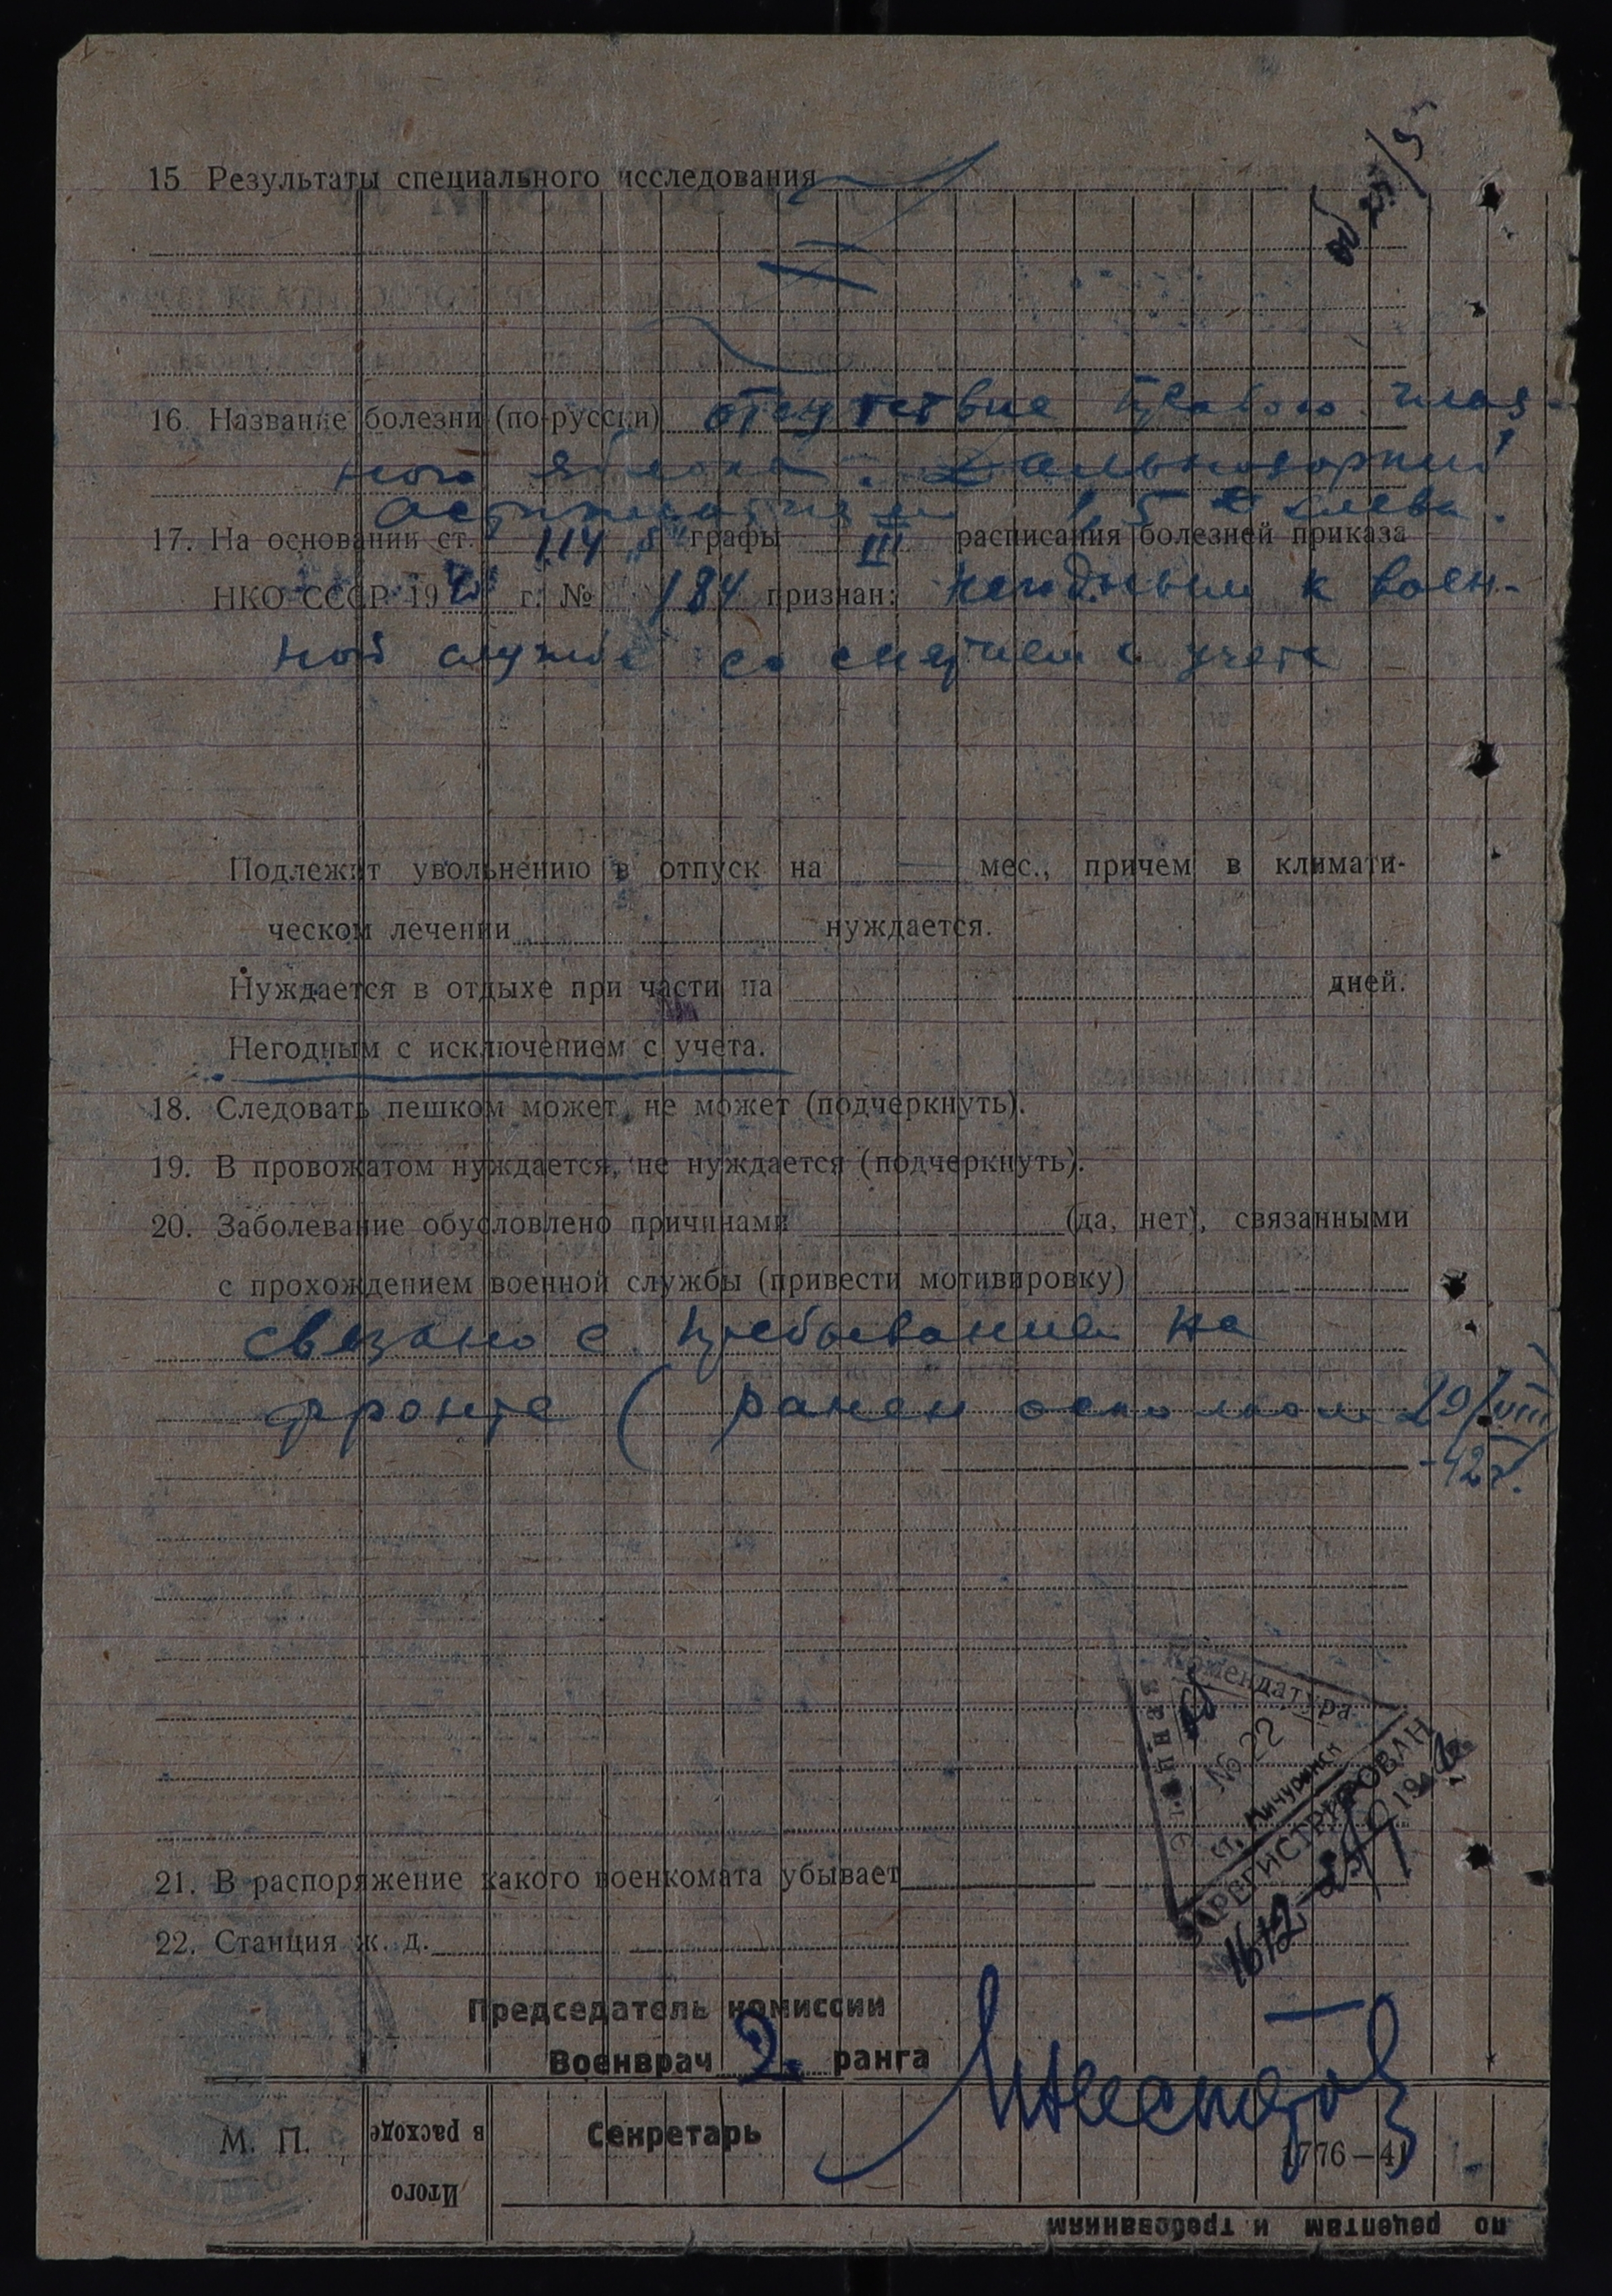 15 Результаты специального исследования
16. Название болезни (по-русски) отсутствие правого глаз-
ного яблока. Дальнозоркий
астигматизм 1,5 D слева.
17. На основании ст. 114 „б“ графы III расписания болезней приказа
НКО СССР 1942 г. № 184 признан: негодным к воен-
ной службе со снятием с учета
Подлежит увольнению в отпуск на мес., причем в климати-
ческом лечении нуждается.
Нуждается в отдыхе при части на дней.
Негодным с исключением с учета.
18. Следовать пешком может, не может (подчеркнуть).
19. В провожатом нуждается, не нуждается (подчеркнуть).
20. Заболевание обусловлено причинами (да, нет), связанными
с прохождением военной службы (привести мотивировку)
связано с пребыванием на
фронте (ранен осколком 29/VIII
-42г.)
Комендатура
№ 22
ст. Мичуринск
ЗАРЕГИСТРИРОВАН
21. В распоряжение какого военкомата убывает
22. Станция ж. д.
Председатель комиссии
Военврач 2. ранга
Секретарь
М. П.
в расходе
Итого
1776—41
по рецептам и требованиям